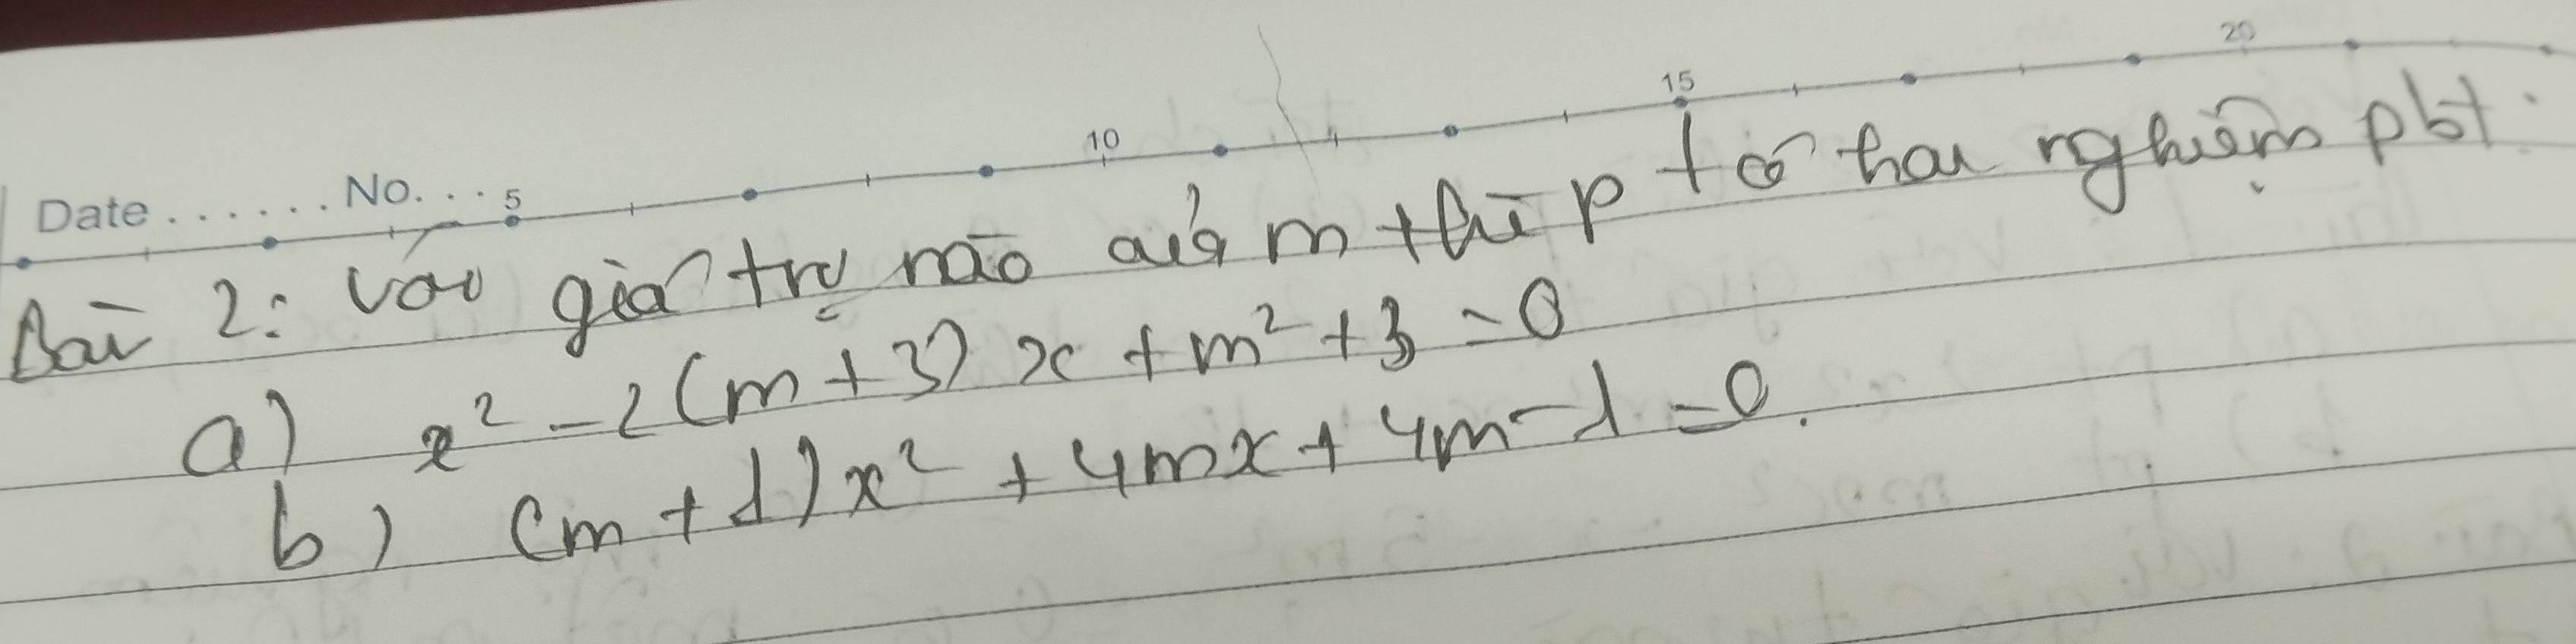 Date ....... No. ... 5 10 15 20
Bài 2: Với giá trị nào của m thì pt có hai nghiệm pbt.
a) x² - 2(m + 3) x + m² + 3 = 0
b) (m + 1) x² + 4mx + 4m - 1 = 0.